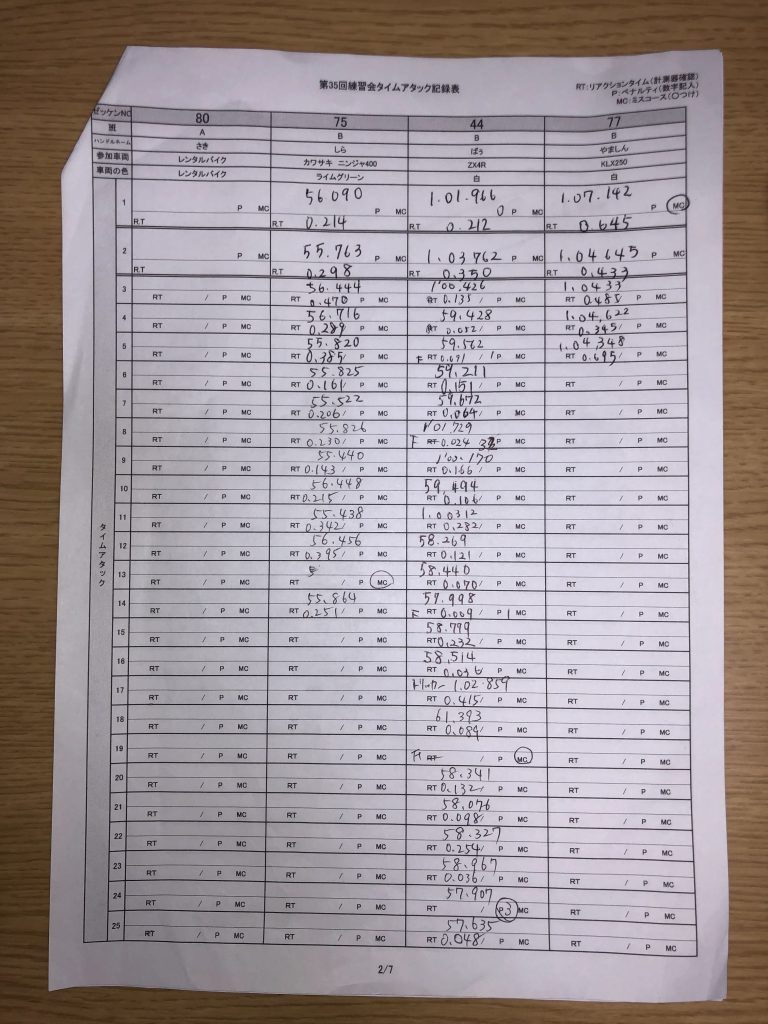 第35回練習会タイムアタック記録表
RT:リアクションタイム(計測器確認)
P:ペナルティ(数字記入)
MC:ミスコース(〇つけ)
ゼッケンNO 80 75 44 77
班 A B B B
ハンドルネーム さき しら ばぅ やましん
参加車両 レンタルバイク カワサキ ニンジャ400 ZX4R KLX250
車両の色 レンタルバイク ライムグリーン 白 白
タイムアタック
1 56 090 1.01.966 1.07.142
P MC P MC 0 P MC P MC
R.T R.T 0.214 R.T 0.212 R.T 0.645
2 55.763 1.03762 1.04645
P MC P MC P MC P MC
R.T R.T 0.298 R.T 0.350 R.T 0.433
3 56.444 1'00.426 1.0433
RT / P MC RT 0.470 P MC RT 0.135/ P MC RT 0.485 P MC
4 56.716 59.428 1.04,622
RT / P MC RT 0.289 P MC RT 0.052/ P MC RT 0.345/ P MC
5 55.820 59.562 1.04,348
RT / P MC RT 0.385/ P MC F RT 0.091 /1P MC RT 0.695/ P MC
6 55.825 59.211
RT / P MC RT 0.161/ P MC RT 0.151/ P MC RT / P MC
7 55.522 59.672
RT / P MC RT 0.206/ P MC RT 0.064/ P MC RT / P MC
8 55.826 1'01,729
RT / P MC RT 0.230/ P MC F RT 0.024 P MC RT / P MC
9 55.440 1'00.170
RT / P MC RT 0.143/ P MC RT 0.166/ P MC RT / P MC
10 56.448 59,494
RT / P MC RT 0.215/ P MC RT 0.106/ P MC RT / P MC
11 55.438 1.00312
RT / P MC RT 0.342/ P MC RT 0.282/ P MC RT / P MC
12 56.456 58.269
RT / P MC RT 0.395/ P MC RT 0.121/ P MC RT / P MC
13 58.440
RT / P MC RT / P MC RT 0.070/ P MC RT / P MC
14 55.864 57.998
RT / P MC RT 0.251/ P MC F RT 0.009 / P 1 MC RT / P MC
15 58.799
RT / P MC RT / P MC RT 0,232/ P MC RT / P MC
16 58,514
RT / P MC RT / P MC RT 0.036/ P MC RT / P MC
17 トリッカー 1.02.859
RT / P MC RT / P MC RT 0.415/ P MC RT / P MC
18 61.393
RT / P MC RT / P MC RT 0.084/ P MC RT / P MC
19
RT / P MC RT / P MC RT / P MC RT / P MC
20 58.341
RT / P MC RT / P MC RT 0.132/ P MC RT / P MC
21 58.076
RT / P MC RT / P MC RT 0.098/ P MC RT / P MC
22 58.327
RT / P MC RT / P MC RT 0.254/ P MC RT / P MC
23 58.967
RT / P MC RT / P MC RT 0.036/ P MC RT / P MC
24 57.907
RT / P MC RT / P MC RT / P3 MC RT / P MC
25 57.635
RT / P MC RT / P MC RT 0.048/ P MC RT / P MC
2/7